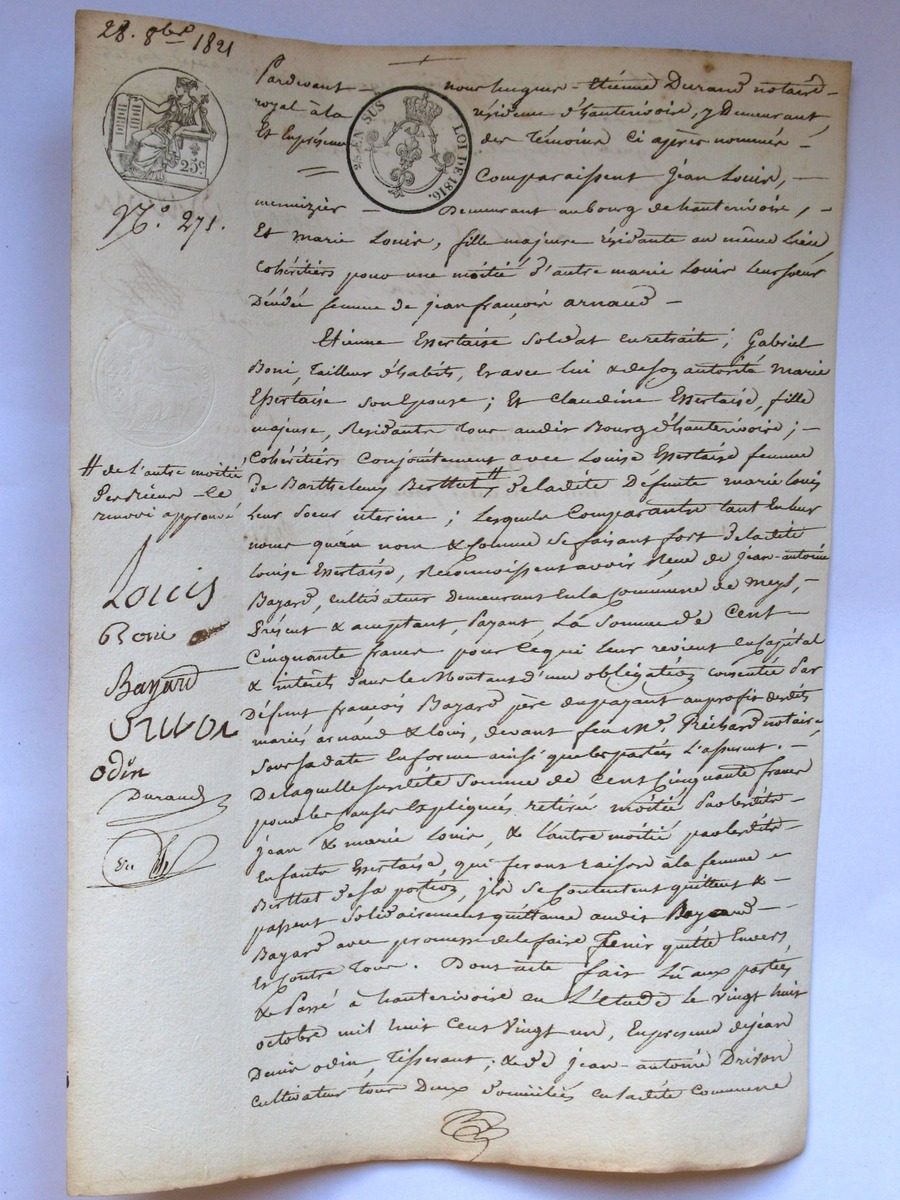 28. 8bre 1821
25c.
25c EN SUS LOI DE 1816.
N.o 271.
Pardevant — nous hugues-Etienne Durand notaire
royal à la résidence d'hauterivoire, y Demeurant,
Et En présence des Témoins Ci après nommés —
Comparaissent Jean Louis, —
menuizier — Demeurant au bourg de hauterivoire, —
Et Marie Louis, fille majeure résidante au même Lieu
Cohéritiers pour une moitié d'autre marie Louis Leur soeur
Décédée femme de jean françois arnaud —
Etienne Essertaise soldat en retraite ; Gabriel
Boni, Tailleur d'habits, Et avec lui & de son autorité Marie
Essertaise son Epouse ; Et Claudine Essertaise, fille
majeure, Résidants Tous audit Bourg d'hauterivoire ; —
Cohéritiers Conjointement avec Louise Essertaise femme
de Barthelemy Berthat, # de ladite Défunte marie Louis
Leur Soeur uterine ; Lesquels Comparants tant En leur
noms qu'au nom & Comme se faisant fort de ladite
Louise Essertaise, Reconnoissent avoir Reçu de Jean-antoine
Bayard, cultivateur demeurant En la Commune de Meys, —
Présent & acceptant, Payant, La Somme de Cent
Cinquante francs pour Ce qui Leur revient En capital
& intérêts dans le Montant d'une obligation consentie Par
Défunt françois Bayard père du payant au profit desdits
mariés arnaud & Louis, devant feu M.e Préchard notaire
Sous sa date En forme ainsi que les parties L'assurent. —
De laquelle susdite somme de Cent Cinquante francs
pour les Causes Expliquées, retirée moitié Par lesdits
Jean & marie Louis, & L'autre moitié par lesdits
Enfants Essertaise, qui feront raison à la femme
Berthat de sa portion, ils se Contentent quittent &
passent Solidairement quittance audit Bayard —
Bayard avec promesse de le faire Tenir quitte Envers
Et Contre Tous. Dont acte fait Lu aux parties
& Passé à hauterivoire en L'étude le vingt huit
octobre mil huit Cent Vingt un, En présence de jean
Denis odin, Tisserant ; & de jean-antoine Drivon
cultivateur tous Deux Domiciliés en ladite Commune
# de L'autre moitié
d'erdrieur Le
renvoi approuvé
Louis
Boni
Bayard
Drivon
odin
Durand